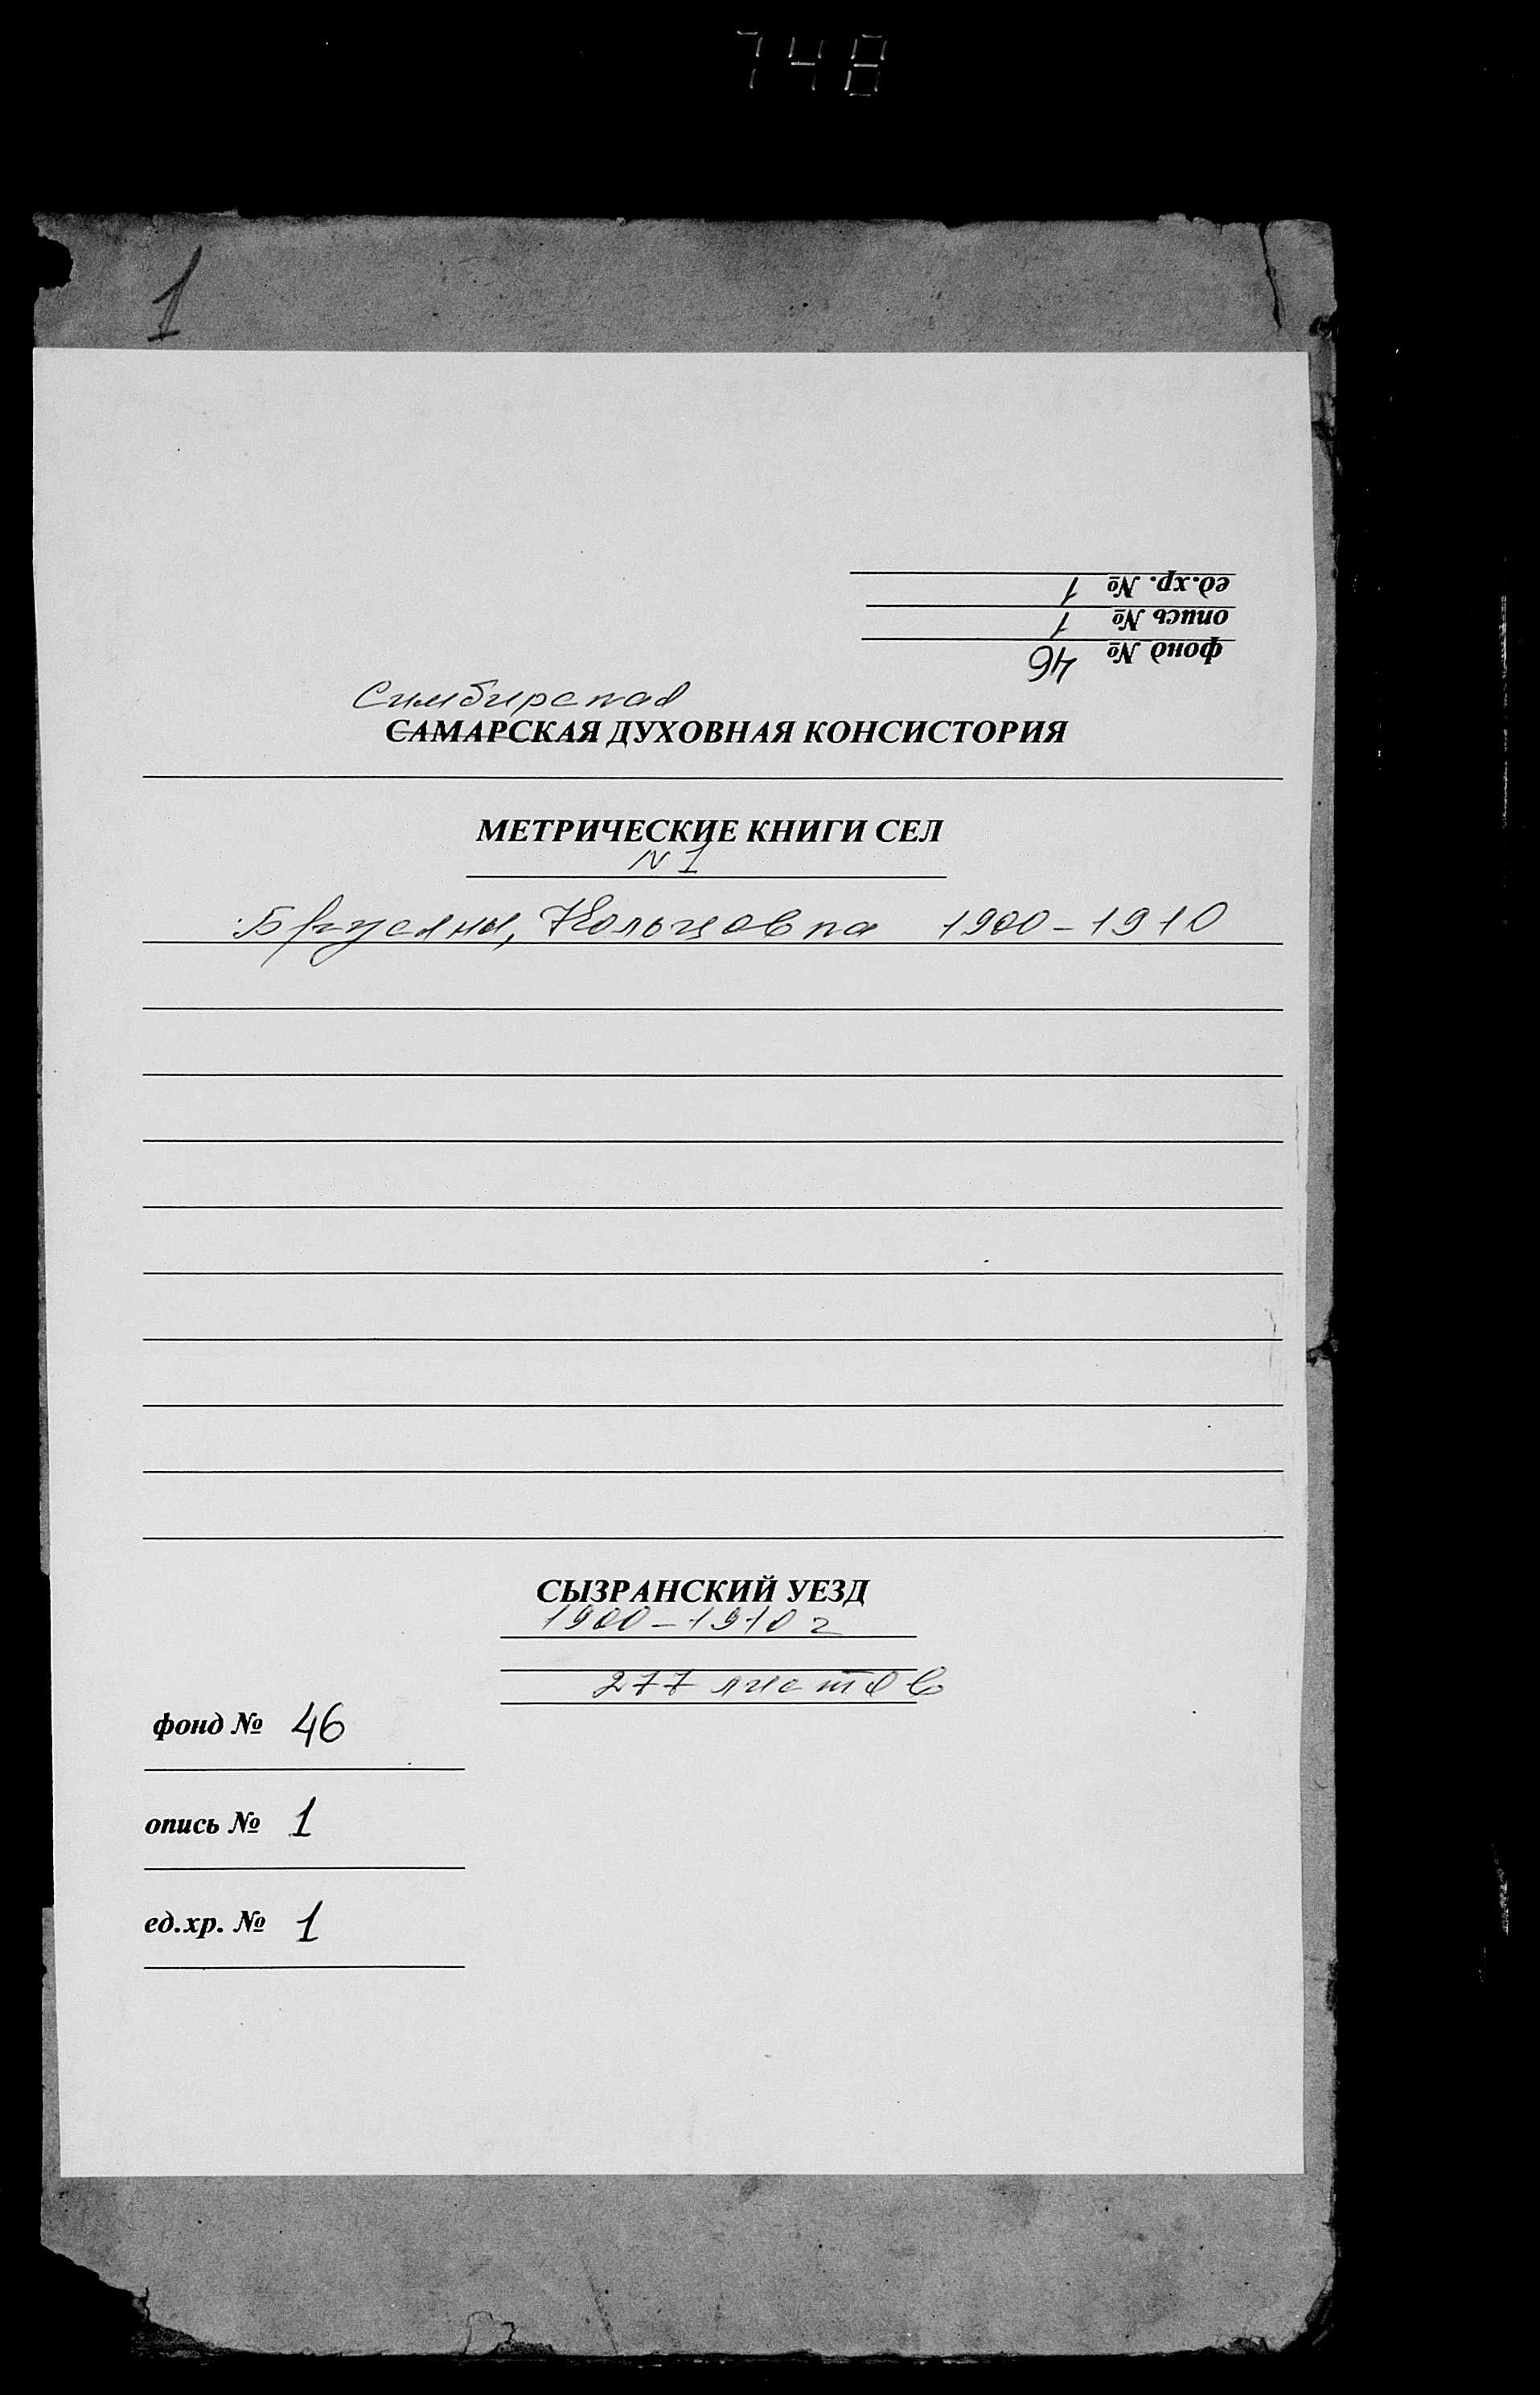 748
1
ед.хр. № 1
опись № 1
фонд № 46
Симбирская
САМАРСКАЯ ДУХОВНАЯ КОНСИСТОРИЯ
МЕТРИЧЕСКИЕ КНИГИ СЕЛ
N 1
Брусяны, Кольцовка 1900-1910
СЫЗРАНСКИЙ УЕЗД
1900-1910 г
277 листов
фонд № 46
опись № 1
ед.хр. № 1